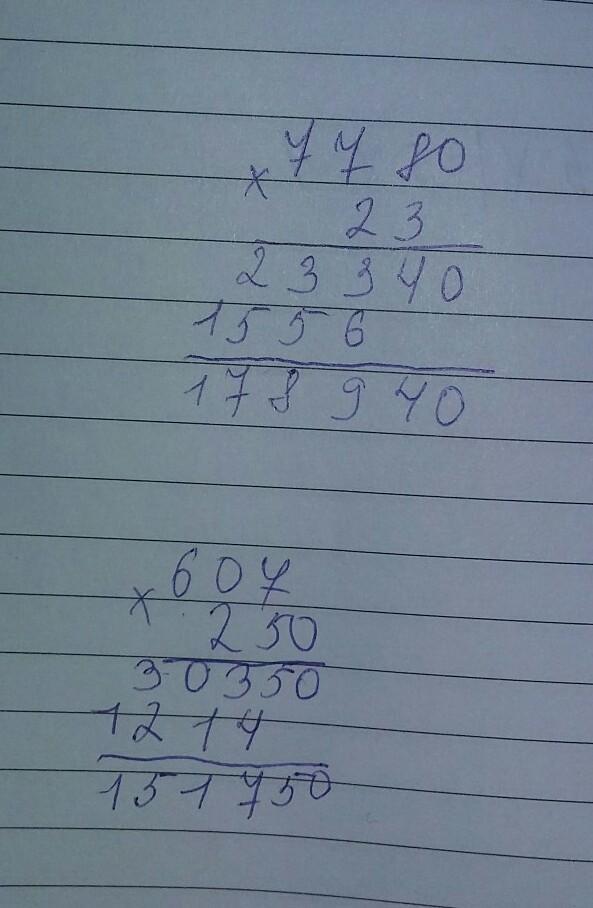 × 7780
23
23340
1556
178940
× 607
250
30350
1214
151750